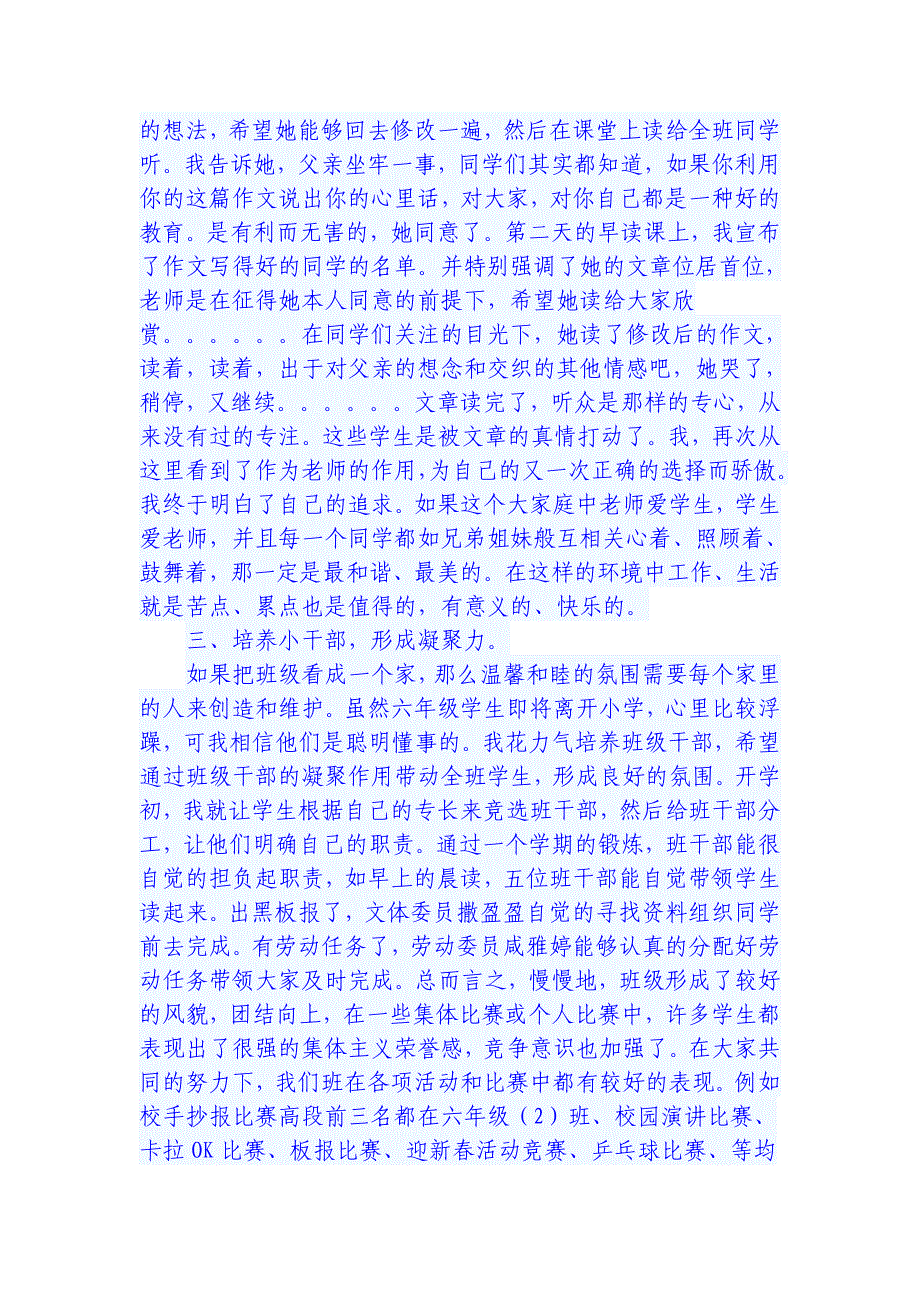 的想法，希望她能够回去修改一遍，然后在课堂上读给全班同学
听。我告诉她，父亲坐牢一事，同学们其实都知道，如果你利用
你的这篇作文说出你的心里话，对大家，对你自己都是一种好的
教育。是有利而无害的，她同意了。第二天的早读课上，我宣布
了作文写得好的同学的名单。并特别强调了她的文章位居首位，
老师是在征得她本人同意的前提下，希望她读给大家欣
赏。。。。。。在同学们关注的目光下，她读了修改后的作文，
读着，读着，出于对父亲的想念和交织的其他情感吧，她哭了，
稍停，又继续。。。。。。文章读完了，听众是那样的专心，从
来没有过的专注。这些学生是被文章的真情打动了。我，再次从
这里看到了作为老师的作用，为自己的又一次正确的选择而骄傲。
我终于明白了自己的追求。如果这个大家庭中老师爱学生，学生
爱老师，并且每一个同学都如兄弟姐妹般互相关心着、照顾着、
鼓舞着，那一定是最和谐、最美的。在这样的环境中工作、生活
就是苦点、累点也是值得的，有意义的、快乐的。
三、培养小干部，形成凝聚力。
如果把班级看成一个家，那么温馨和睦的氛围需要每个家里
的人来创造和维护。虽然六年级学生即将离开小学，心里比较浮
躁，可我相信他们是聪明懂事的。我花力气培养班级干部，希望
通过班级干部的凝聚作用带动全班学生，形成良好的氛围。开学
初，我就让学生根据自己的专长来竞选班干部，然后给班干部分
工，让他们明确自己的职责。通过一个学期的锻炼，班干部能很
自觉的担负起职责，如早上的晨读，五位班干部能自觉带领学生
读起来。出黑板报了，文体委员撒盈盈自觉的寻找资料组织同学
前去完成。有劳动任务了，劳动委员咸雅婷能够认真的分配好劳
动任务带领大家及时完成。总而言之，慢慢地，班级形成了较好
的风貌，团结向上，在一些集体比赛或个人比赛中，许多学生都
表现出了很强的集体主义荣誉感，竞争意识也加强了。在大家共
同的努力下，我们班在各项活动和比赛中都有较好的表现。例如
校手抄报比赛高段前三名都在六年级（2）班、校园演讲比赛、
卡拉 OK 比赛、板报比赛、迎新春活动竞赛、乒乓球比赛、等均